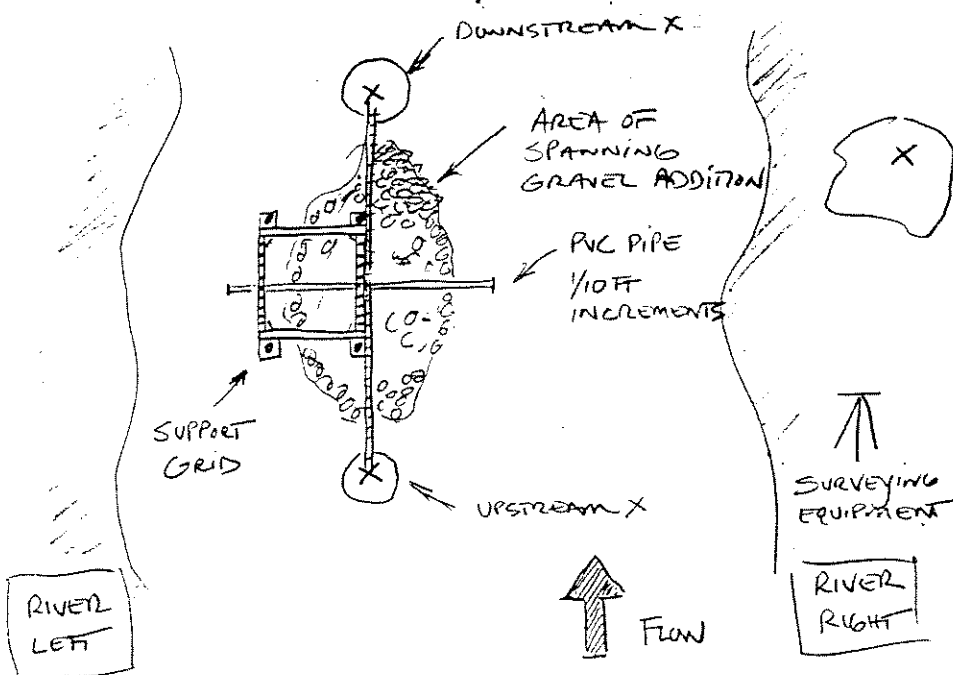 DOWNSTREAM X
X
AREA OF
SPANNING
GRAVEL ADDITION
X
PVC PIPE
1/10 FT
INCREMENTS
SUPPORT
GRID
X
UPSTREAM X
SURVEYING
EQUIPMENT
RIVER
LEFT
FLOW
RIVER
RIGHT